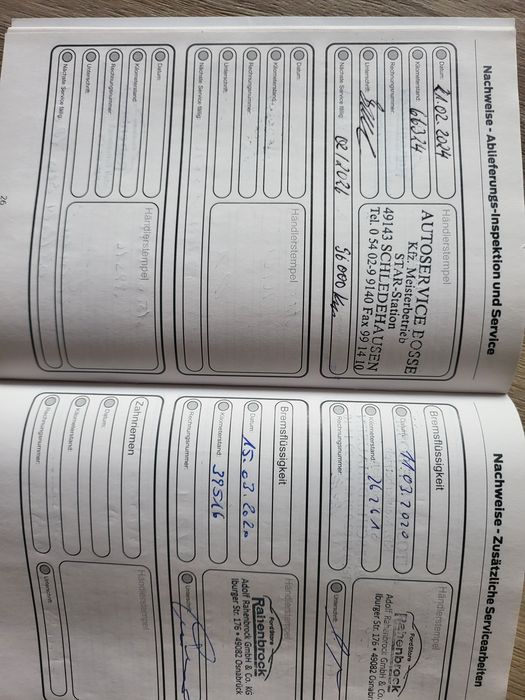 Nachweise - Ablieferungs-Inspektion und Service
Datum: 21.02.2024
Kilometerstand: 66324
Rechnungsnummer:
Unterschrift:
Nächste Service fällig: 96000 km
Händlerstempel
AUTOSERVICE BOSSE
Kfz. Meisterbetrieb
STAR-Station
49143 SCHLEDEHAUSEN
Tel. 0 54 02-9 9140 Fax 99 14 10
Datum:
Kilometerstand:
Rechnungsnummer:
Unterschrift:
Nächste Service fällig:
Händlerstempel
Datum:
Kilometerstand:
Rechnungsnummer:
Unterschrift:
Nächste Service fällig:
Händlerstempel
26
Nachweise - Zusätzliche Servicearbeiten
Bremsflüssigkeit
Datum: 11.03.2020
Kilometerstand:
Rechnungsnummer:
Händlerstempel
FordStore
Rahenbrock
Adolf Rahenbrock GmbH & Co.
Iburger Str. 176 • 49082 Osnabrück
Unterschrift:
Bremsflüssigkeit
Datum: 15.03.202
Kilometerstand: 39516
Rechnungsnummer:
Händlerstempel
FordStore
Rahenbrock
Adolf Rahenbrock GmbH & Co. KG
Iburger Str. 176 • 49082 Osnabrück
Unterschrift:
Zahnriemen
Datum:
Kilometerstand:
Rechnungsnummer:
Händlerstempel
Unterschrift: